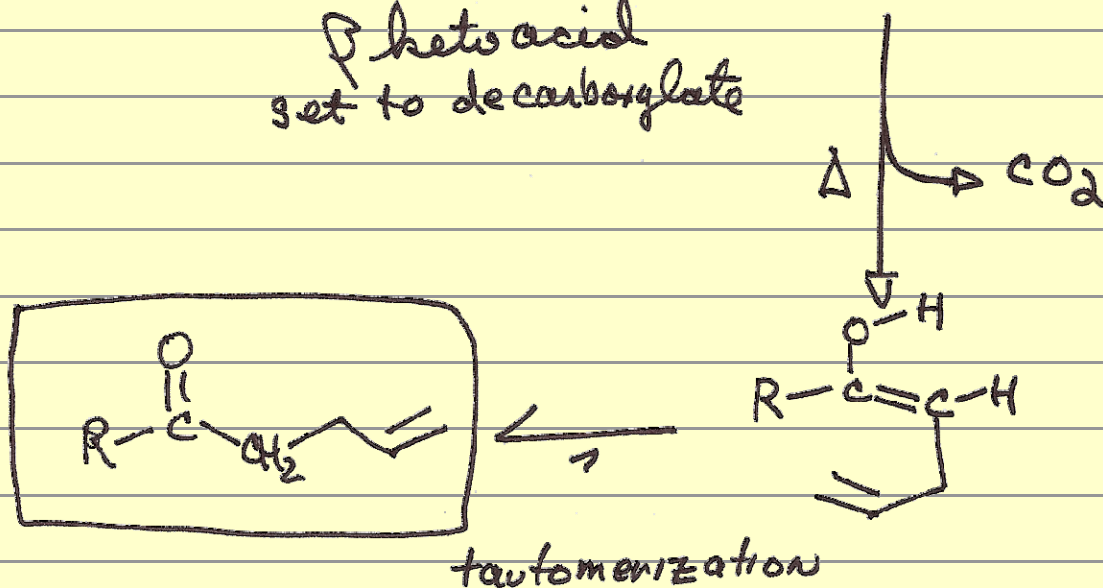 β keto acid
set to decarboxylate
Δ
CO2
O-H
O
R-C=C-H
R-C
CH2
tautomerization